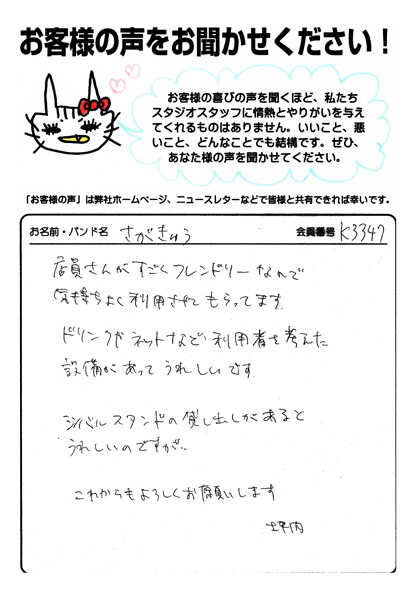 お客様の声をお聞かせください！
お客様の喜びの声を聞くほど、私たち
スタジオスタッフに情熱とやりがいを与え
てくれるものはありません。いいこと、悪
いこと、どんなことでも結構です。ぜひ、
あなた様の声を聞かせてください。
「お客様の声」は弊社ホームページ、ニュースレターなどで皆様と共有できれば幸いです。
お名前・バンド名 さがきゅう 会員番号 K3347
店員さんがすごくフレンドリーなんで
気持ちよく利用させてもらってます。
ドリンクやネットなど利用者を考えた
設備があってうれしいです
シンバルスタンドの貸し出しがあると
うれしいのですが。
これからもよろしくお願いします
坪内